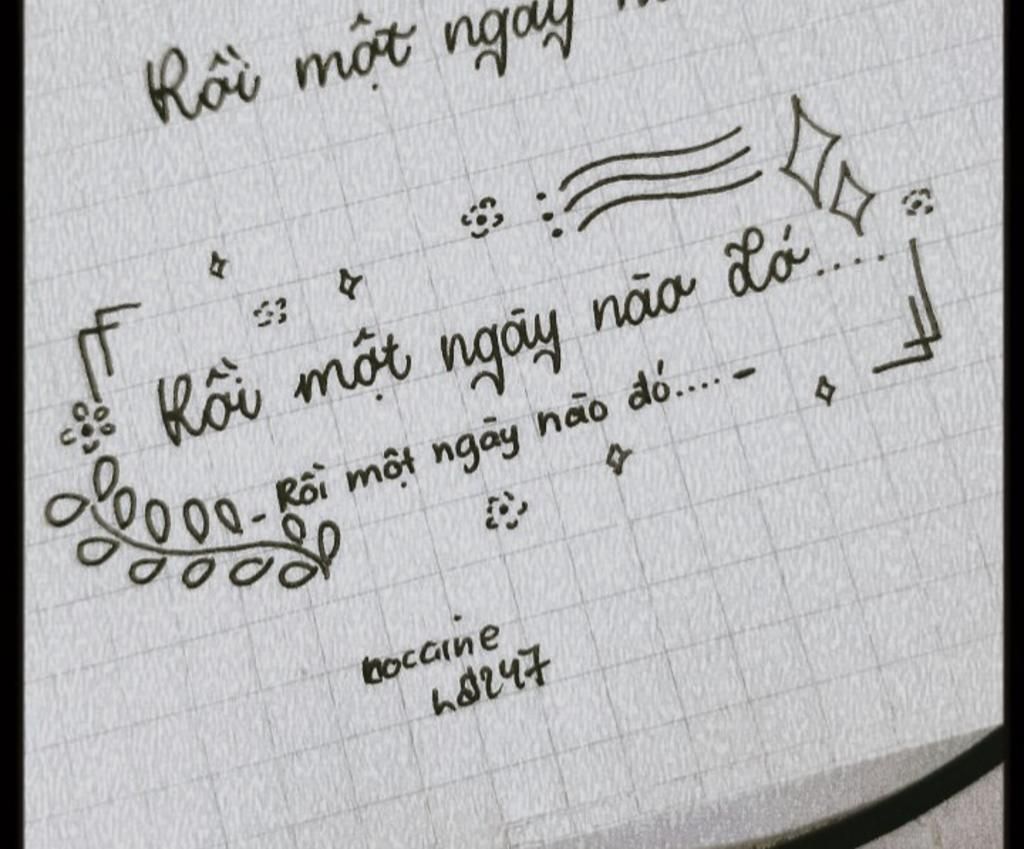 Rồi một ngày
Rồi một ngày nào đó....
- Rồi một ngày nào đó.... -